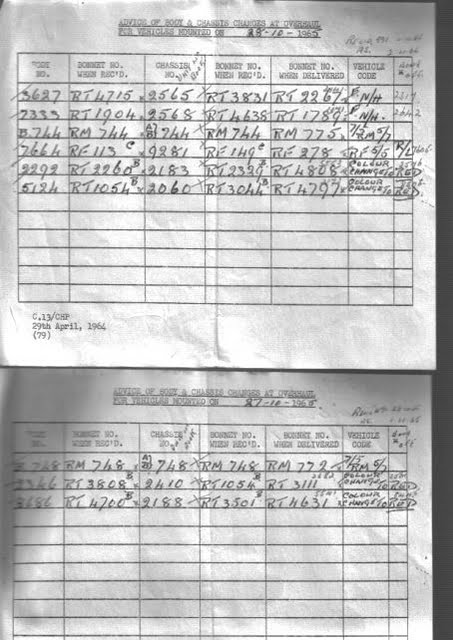 ADVICE OF BODY & CHASSIS CHANGES AT OVERHAUL
FOR VEHICLES MOUNTED ON 28-10-1965
BODY NO. BONNET NO. WHEN REC'D. CHASSIS NO. BONNET NO. WHEN REC'D. BONNET NO. WHEN DELIVERED VEHICLE CODE
3627 RT 4715 2565 RT 3831 RT 2267 F N/H
7333 RT 1904 2568 RT 4638 RT 1789 F N/H
B.744 RM 744 744 RM 744 RM 775 7/5 RM 5/
7664 RF 113 C 9281 RF 149 C RF 278 RF 5/5
2292 RT 2260 B 2183 RT 2329 B RT 4808 COLOUR CHANGE TO RED
5124 RT 1054 B 2060 RT 3044 B RT 4797 COLOUR CHANGE TO RED
C.13/CHP
29th April, 1964
(79)
ADVICE OF BODY & CHASSIS CHANGES AT OVERHAUL
FOR VEHICLES MOUNTED ON 27-10-1965
BODY NO. BONNET NO. WHEN REC'D. CHASSIS NO. BONNET NO. WHEN REC'D. BONNET NO. WHEN DELIVERED VEHICLE CODE
748 RM 748 748 RM 748 RM 772 7/5 RM 5/
2346 RT 3808 B 2410 RT 1054 B RT 3111 COLOUR CHANGE TO RED
3686 RT 4700 B 2188 RT 3501 B RT 4631 COLOUR CHANGE TO RED